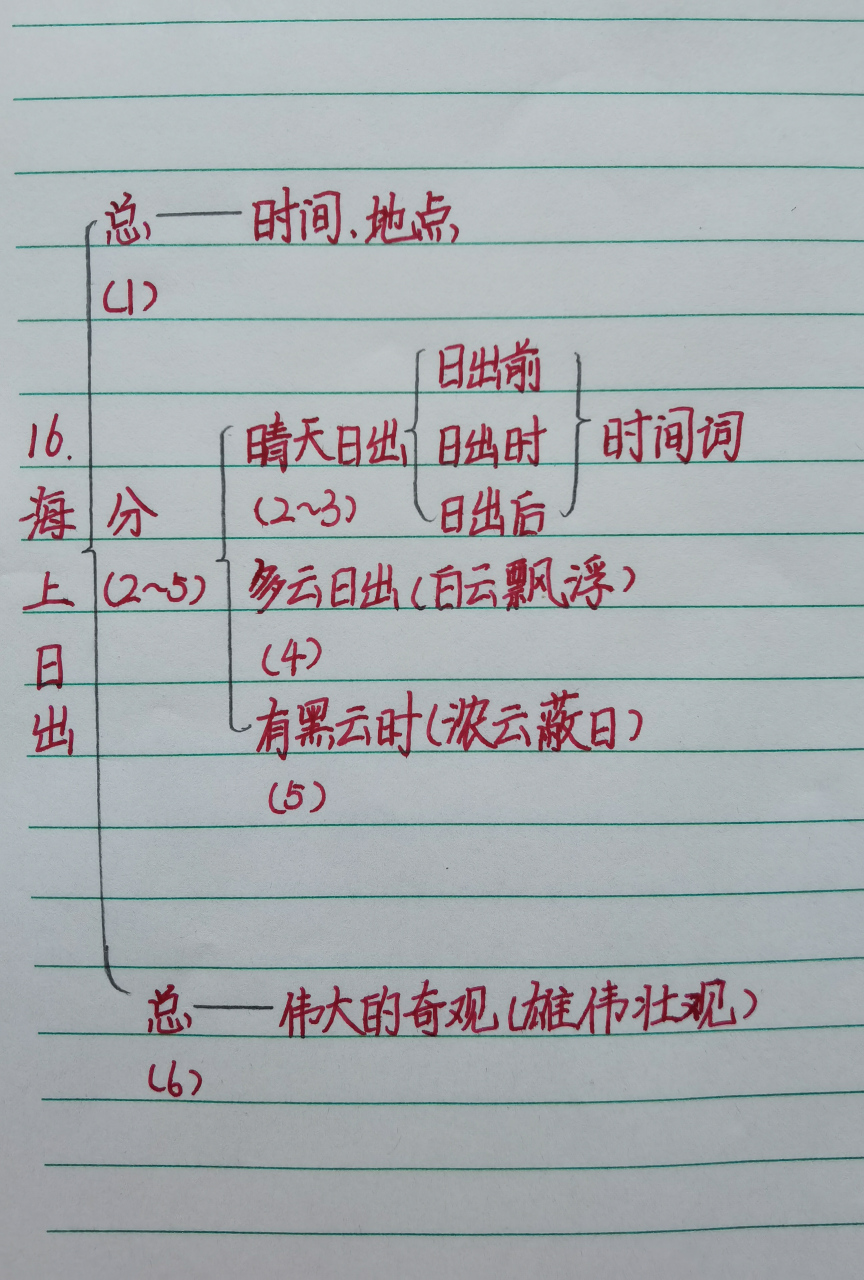 16.海上日出
总——时间、地点
(1)
分
(2~5)
晴天日出
(2~3)
日出前
日出时
日出后
时间词
多云日出(白云飘浮)
(4)
有黑云时(浓云蔽日)
(5)
总——伟大的奇观(雄伟壮观)
(6)